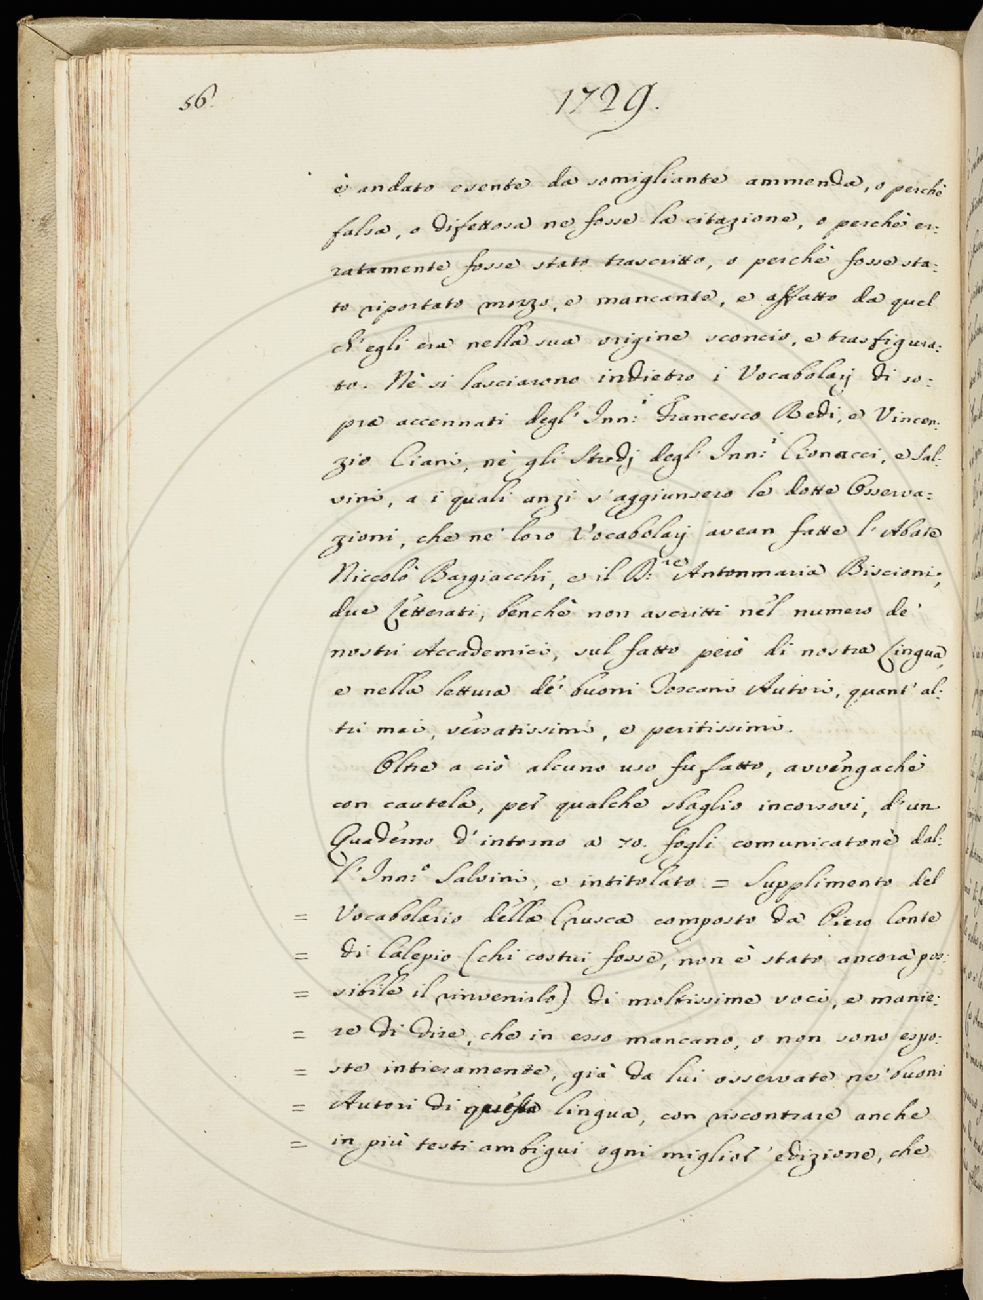 56.
1729.
è andato esente da somigliante ammenda, o perchè
falsa, o difettosa ne fosse la citazione, o perchè er:
ratamente fosse stato trascritto, o perchè fosse sta:
to riportato mozzo, e mancante, e affatto da quel
ch'egli era nella sua origine sconcio, e trasfigura:
to. Nè si lasciarono indietro i Vocabolarj di so:
pra accennati degl' Inn:i Francesco Redi, e Vincen:
zio Ciani, nè gli Studj degl' Inn:i Bonacci, e Sal:
vini, a i quali anzi s'aggiunsero le dotte Osserva:
zioni, che ne' loro Vocabolarj avean fatte l'Abate
Niccolò Bargiacchi, e il D:re Antonmaria Biscioni,
due Letterati, benchè non ascritti nel numero de'
nostri Accademici, sul fatto però di nostra Lingua,
e nella lettura de' buoni Toscani Autori, quant' al:
tri mai, versatissimi, e peritissimi.
Oltre a ciò alcuno uso fu fatto, avvengachè
con cautela, per qualche sbaglio incorsovi, d'un
Quaderno d'intorno a 70. fogli comunicatone dal:
l'Inn:o Salvini, e intitolato = Supplimento del
= Vocabolario della Crusca composto da Piero Conte
= di Calepio (chi costui fosse, non è stato ancora pos:
= sibile il rinvenirlo) di moltissime voci, e manie:
= re di dire, che in esso mancano, o non sono espo:
= ste intieramente, già da lui osservate ne' buoni
= Autori di questa lingua, con riscontrare anche
= in più testi ambigui ogni miglior edizione, che